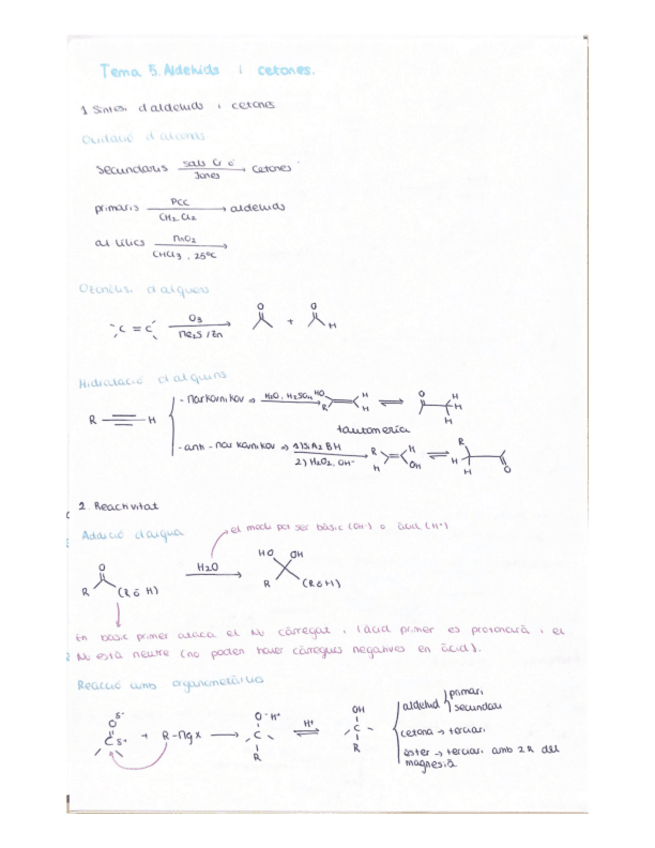 Tema 5. Aldehids i cetones.
1 Síntesi d'aldehids i cetones
Oxidació d'alcohols
secundaris sals Cr ó Jones → cetones
primaris PCC CH2Cl2 → aldehids
al·lílics MnO2 CHCl3, 25ºC →
Ozonòlisi d'alquens
C = C O3 Me2S / Zn → O + O H
Hidratació d'alquins
R ≡ H
- Markovnikov ⇒ H2O, H2SO4 HO R H H ⇌ O H H H
tautomeria
- anti-markovnikov ⇒ 1) Sia2BH 2) H2O2, OH- R H H OH ⇌ R H H O
2. Reactivitat
Addició d'aigua
el medi pot ser bàsic (OH-) o àcid (H+)
O R (R ó H) H2O → HO OH R (R ó H)
En bàsic primer ataca el Nu carregat i l'àcid primer es protonarà i el
Nu està neutre (no poden haver càrregues negatives en àcid).
Reacció amb organometàl·lics
δ- O C δ+ + R-Mgx → O- H+ C R ⇌ H+ OH C R
aldehid primari secundari
cetona → terciari
ester → terciari amb 2R del
magnesià